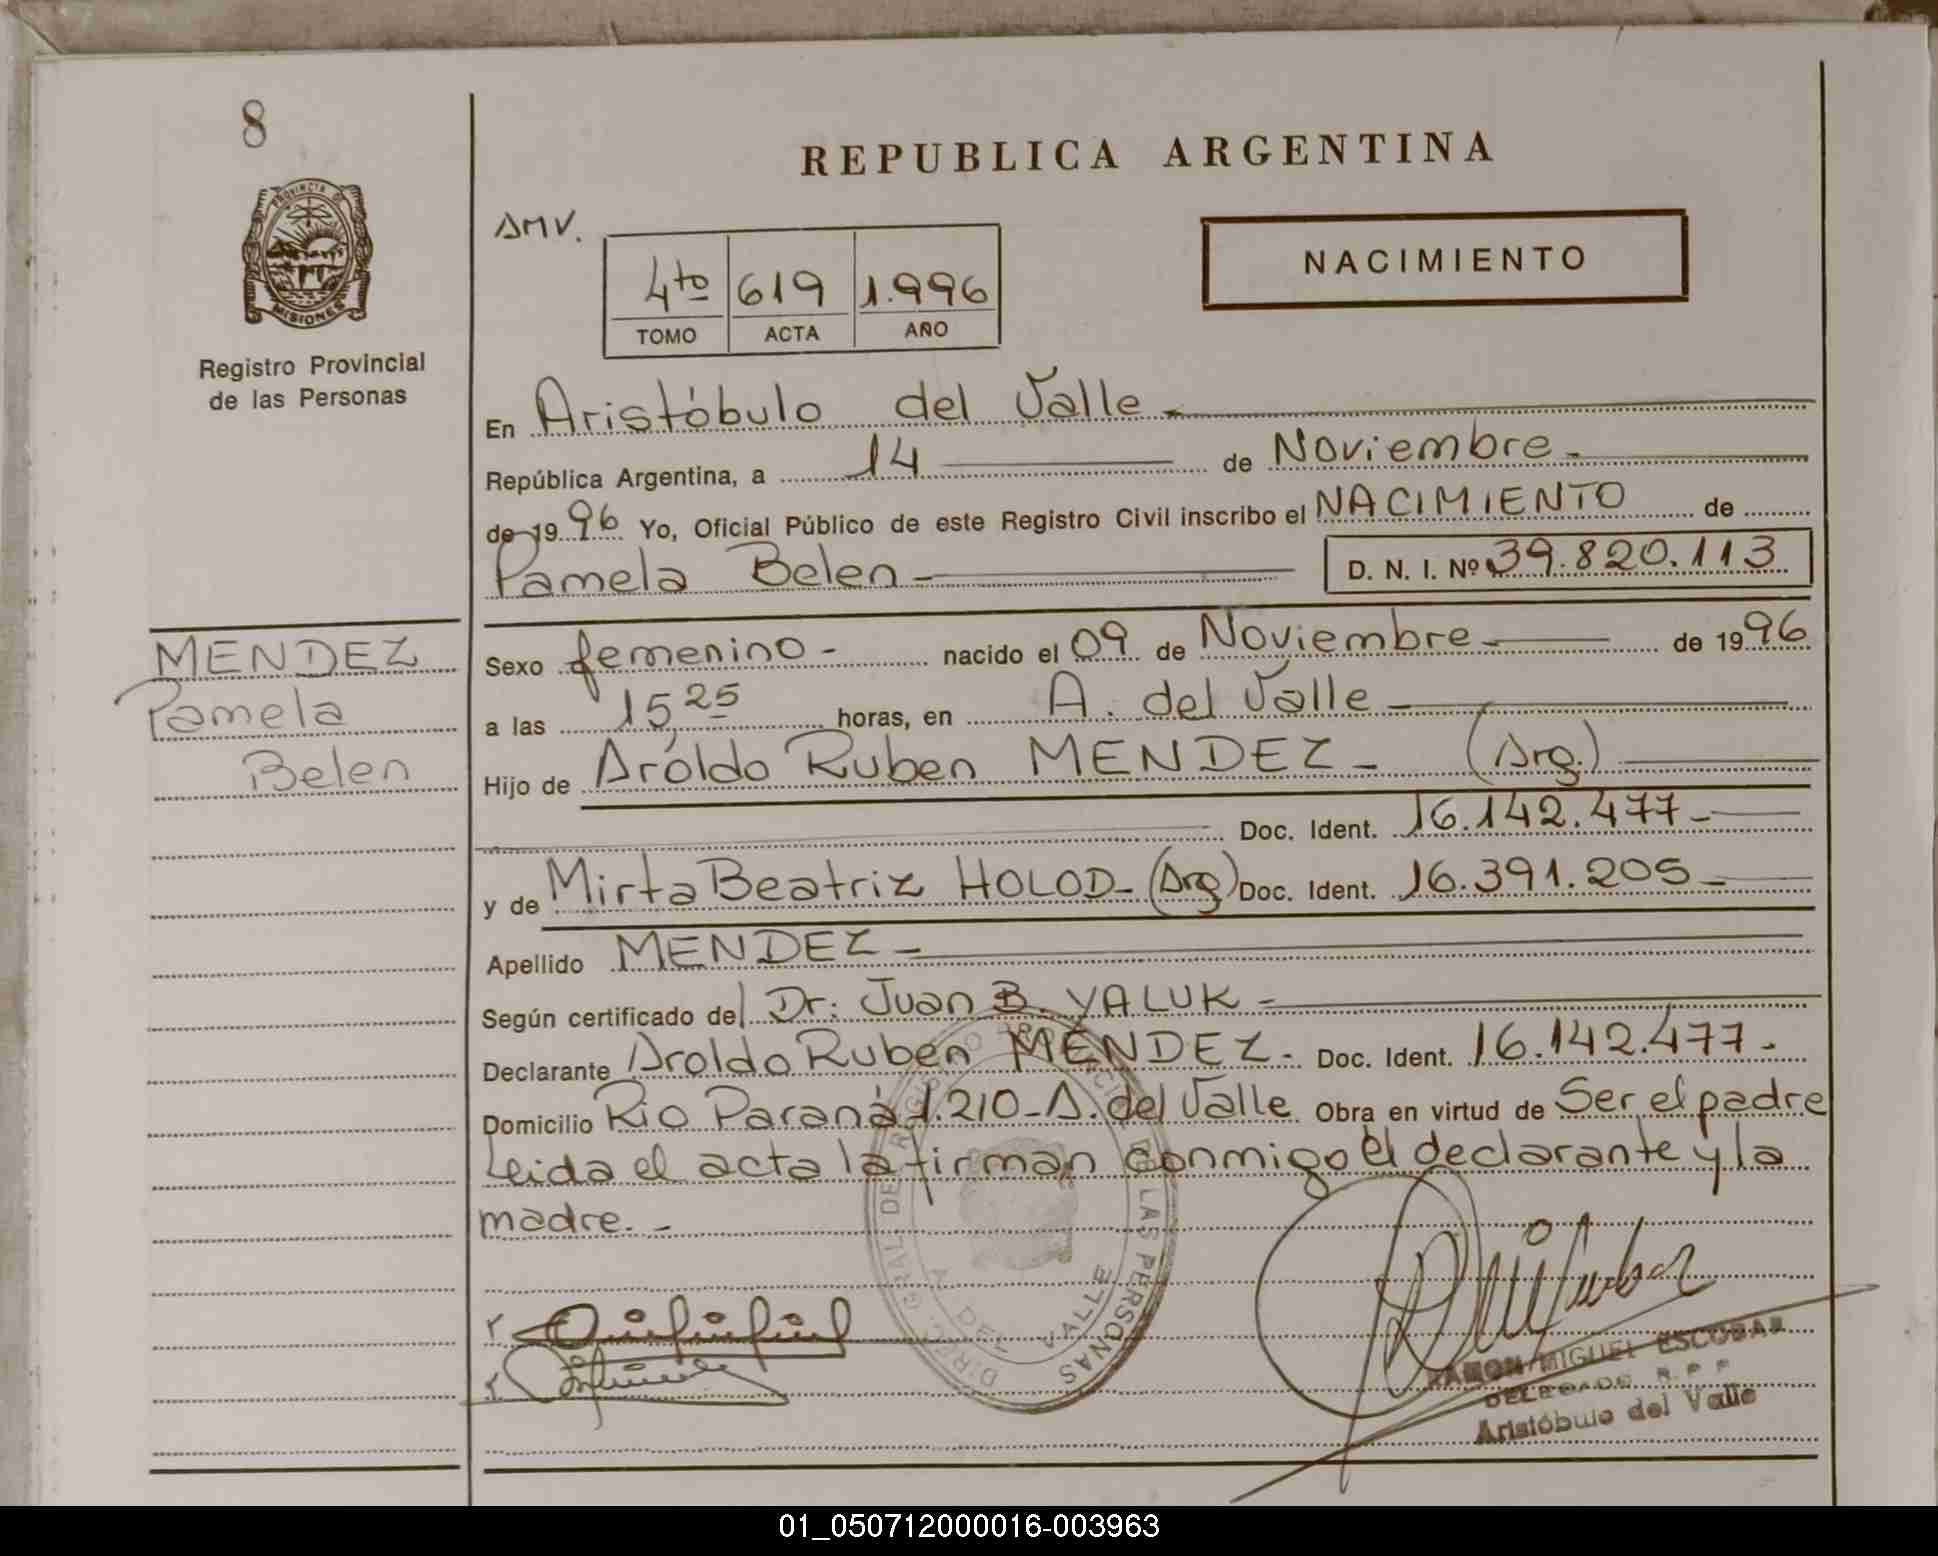 8
PROVINCIA DE
MISIONES
Registro Provincial
de las Personas
MENDEZ
Pamela
Belen
REPUBLICA ARGENTINA
AMV.
NACIMIENTO
4to 619 1.996
TOMO ACTA AÑO
En Aristóbulo del Valle.
República Argentina, a 14 de Noviembre.
de 1996 Yo, Oficial Público de este Registro Civil inscribo el NACIMIENTO de
Pamela Belen D. N. I. Nº 39.820.113
Sexo femenino - nacido el 09 de Noviembre de 1996
a las 15,25 horas, en A. del Valle
Hijo de Aroldo Ruben MENDEZ - (Arg.)
Doc. Ident. 16.142.477-
y de Mirta Beatriz HOLOD- (Arg) Doc. Ident. 16.391.205-
Apellido MENDEZ -
Según certificado del Dr: Juan B. YALUK -
Declarante Aroldo Ruben MENDEZ- Doc. Ident. 16.142.477-
Domicilio Río Paraná 1.210-A. del Valle Obra en virtud de Ser el padre
Leida el acta la firman conmigo el declarante y la
madre. -
DEL VALLE
LAS PERSONAS
RAMON MIGUEL ESCOBAR
DELEGADO R.P.P
Aristóbulo del Valle
01_050712000016-003963